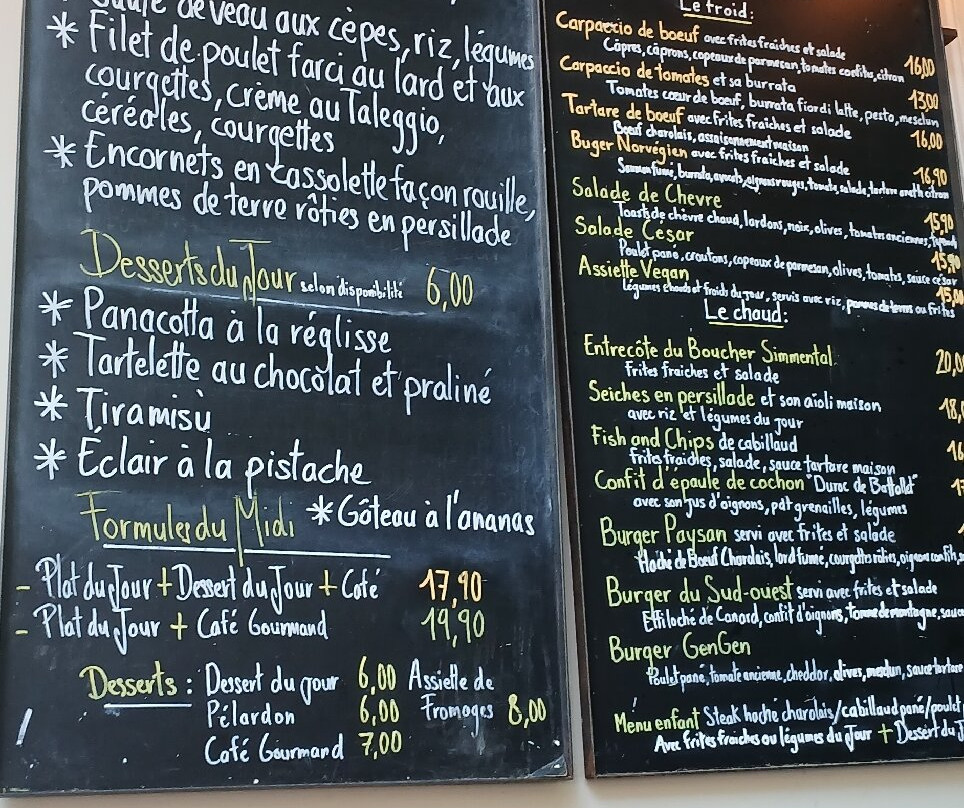 de veau aux cèpes, riz, légumes
* Filet de poulet farci au lard et aux
courgettes, crème au Taleggio,
céréales, courgettes
* Encornets en cassolette façon rouille,
pommes de terre rôties en persillade
Desserts du Jour selon disponibilité 6,00
* Panacotta à la réglisse
* Tartelette au chocolat et praliné
* Tiramisù
* Éclair à la pistache
* Gâteau à l'ananas
Formules du Midi
- Plat du Jour + Dessert du Jour + Café 17,90
- Plat du Jour + Café Gourmand 19,90
Desserts : Dessert du jour 6,00 Assiette de
Pélardon 6,00 Fromages 8,00
Café Gourmand 7,00
Le froid:
Carpaccio de boeuf avec frites fraiches et salade
Câpres, câprons, copeaux de parmesan, tomates confites, citron 16,00
Carpaccio de Tomates et sa burrata
Tomates coeur de boeuf, burrata fior di latte, pesto, mesclun 13,00
Tartare de boeuf avec frites fraiches et salade
Boeuf charolais, assaisonnement maison 16,00
Buger Norvégien avec frites fraiches et salade
Saumon fumé, burrata, avocats, oignons rouges, tomate, salade, tartare aneth citron 16,90
Salade de Chevre
Toasts de chèvre chaud, lardons, noix, olives, tomates anciennes, 15,90
Salade César
Poulet pané, croutons, copeaux de parmesan, olives, tomates, sauce césar 15,90
Assiette Vegan
Légumes chauds et froids du jour, servis avec riz, pommes de terres ou frites 15,00
Le chaud:
Entrecôte du Boucher Simmental 20,0
frites fraiches et salade
Seiches en persillade et son aïoli maison 18,
avec riz et légumes du jour
Fish and Chips de cabillaud 16
frites fraiches, salade, sauce tartare maison
Confit d'épaule de cochon "Duroc de Batallé"
avec son jus d'oignons, pdt grenailles, légumes
Burger Paysan servi avec frites et salade
Haché de Boeuf Charolais, lard fumé, courgettes rôties, oignons confits,
Burger du Sud-ouest servi avec frites et salade
Effiloché de Canard, confit d'oignons, tomme de montagne, sauce
Burger GenGen
Poulet pané, tomate ancienne, cheddar, olives, mesclun, sauce tartare
Menu enfant Steak haché charolais/cabillaud pané/poulet
Avec frites fraiches ou légumes du Jour + Dessert du J